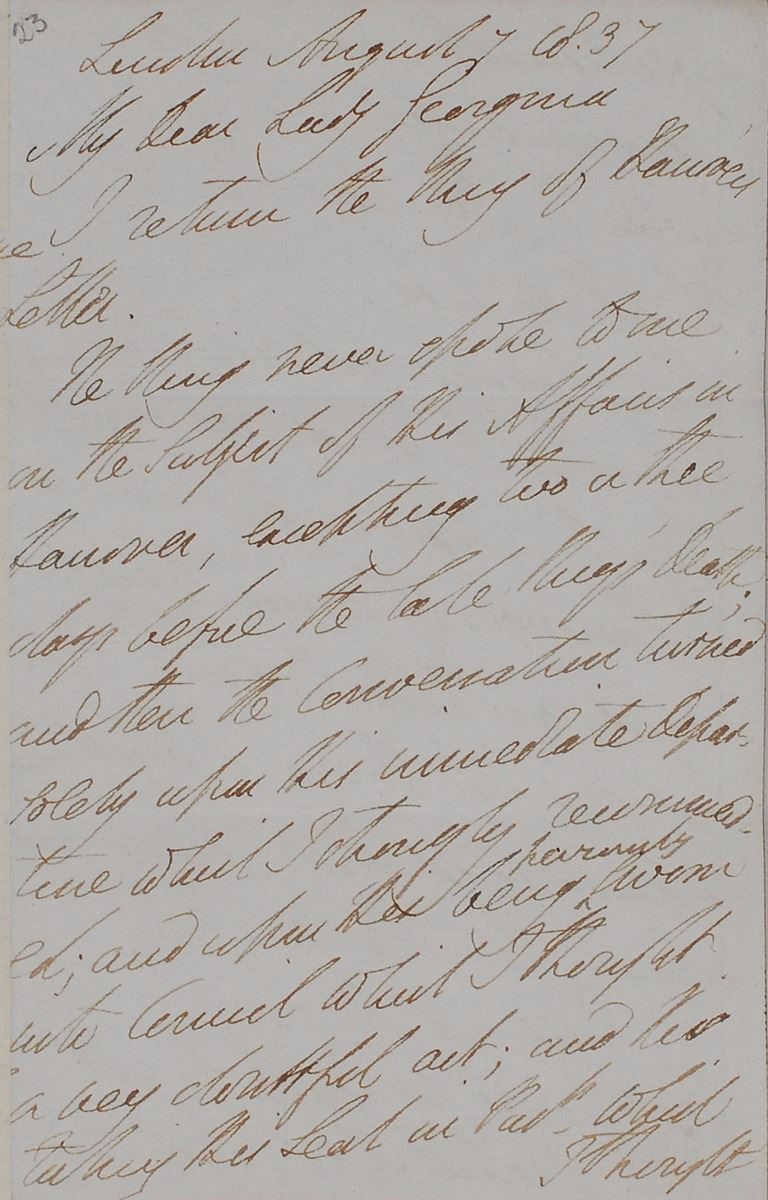 23
London August 7 1837
My Dear Lady Georgina
I return the King of Hanover
Letter.
The King never spoke to me
on the Subject of His Affairs in
Hanover, excepting two or three
days before the late King's Death;
and then the Conversation turned
solely upon His immediate Depar-
ture which I strongly recommend-
previously
ed; and upon His being sworn
into Council which I thought
a very doubtful act; and His
taking His Seat in Parlt. which
I thought